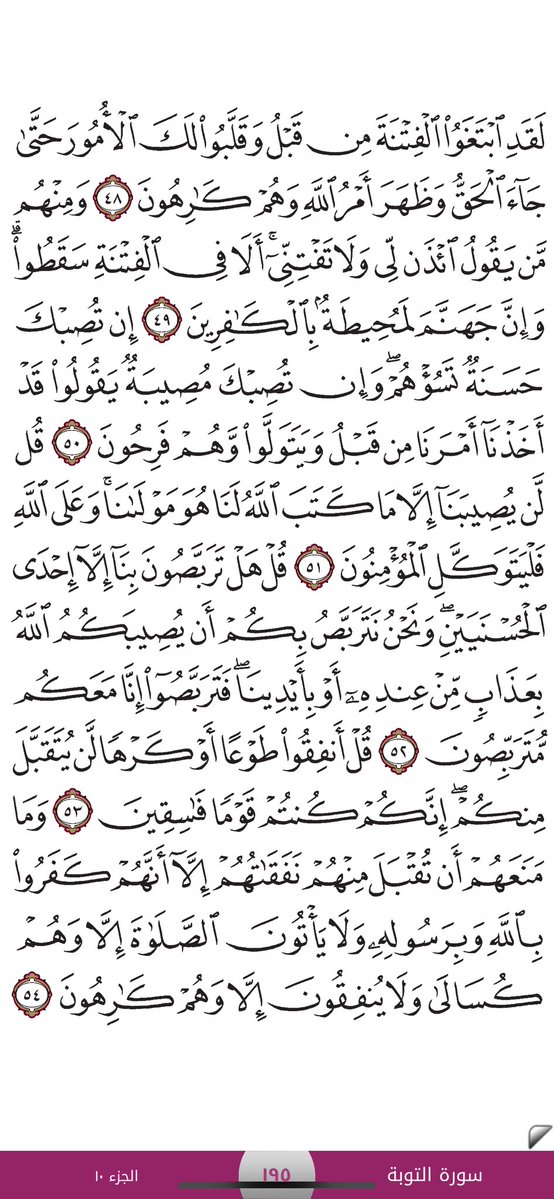 لَقَدِ ٱبْتَغَوُا۟ ٱلْفِتْنَةَ مِن قَبْلُ وَقَلَّبُوا۟ لَكَ ٱلْأُمُورَ حَتَّىٰ
جَآءَ ٱلْحَقُّ وَظَهَرَ أَمْرُ ٱللَّهِ وَهُمْ كَـٰرِهُونَ ٤٨ وَمِنْهُم
مَّن يَقُولُ ٱئْذَن لِّى وَلَا تَفْتِنِّىٓ ۚ أَلَا فِى ٱلْفِتْنَةِ سَقَطُوا۟ ۗ
وَإِنَّ جَهَنَّمَ لَمُحِيطَةٌۢ بِٱلْكَـٰفِرِينَ ٤٩ إِن تُصِبْكَ
حَسَنَةٌ تَسُؤْهُمْ ۖ وَإِن تُصِبْكَ مُصِيبَةٌ يَقُولُوا۟ قَدْ
أَخَذْنَآ أَمْرَنَا مِن قَبْلُ وَيَتَوَلَّوا۟ وَّهُمْ فَرِحُونَ ٥٠ قُل
لَّن يُصِيبَنَآ إِلَّا مَا كَتَبَ ٱللَّهُ لَنَا هُوَ مَوْلَىٰنَا ۚ وَعَلَى ٱللَّهِ
فَلْيَتَوَكَّلِ ٱلْمُؤْمِنُونَ ٥١ قُلْ هَلْ تَرَبَّصُونَ بِنَآ إِلَّآ إِحْدَى
ٱلْحُسْنَيَيْنِ ۖ وَنَحْنُ نَتَرَبَّصُ بِكُمْ أَن يُصِيبَكُمُ ٱللَّهُ
بِعَذَابٍ مِّنْ عِندِهِۦٓ أَوْ بِأَيْدِينَا ۖ فَتَرَبَّصُوٓا۟ إِنَّا مَعَكُم
مُّتَرَبِّصُونَ ٥٢ قُلْ أَنفِقُوا۟ طَوْعًا أَوْ كَرْهًا لَّن يُتَقَبَّلَ
مِنكُمْ ۖ إِنَّكُمْ كُنتُمْ قَوْمًا فَـٰسِقِينَ ٥٣ وَمَا
مَنَعَهُمْ أَن تُقْبَلَ مِنْهُمْ نَفَقَـٰتُهُمْ إِلَّآ أَنَّهُمْ كَفَرُوا۟
بِٱللَّهِ وَبِرَسُولِهِۦ وَلَا يَأْتُونَ ٱلصَّلَوٰةَ إِلَّا وَهُمْ
كُسَالَىٰ وَلَا يُنفِقُونَ إِلَّا وَهُمْ كَـٰرِهُونَ ٥٤
سورة التوبة ١٩٥ الجزء ١٠